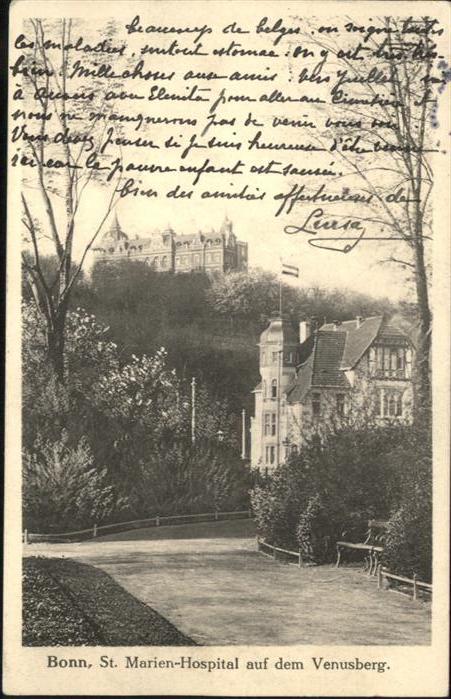 beaucoup de belges, on soigne toutes
les maladies, surtout estomac. on y est très très
bien. Mille choses aux amis
à avec Elenita pour aller au cimetière et
nous ne manquerons pas de venir vous voir.
Vous devez penser si je suis heureuse d'être venue
ici car le pauvre enfant est sauvée.
bien des amitiés affectueuses de
Luisa
Bonn, St. Marien-Hospital auf dem Venusberg.